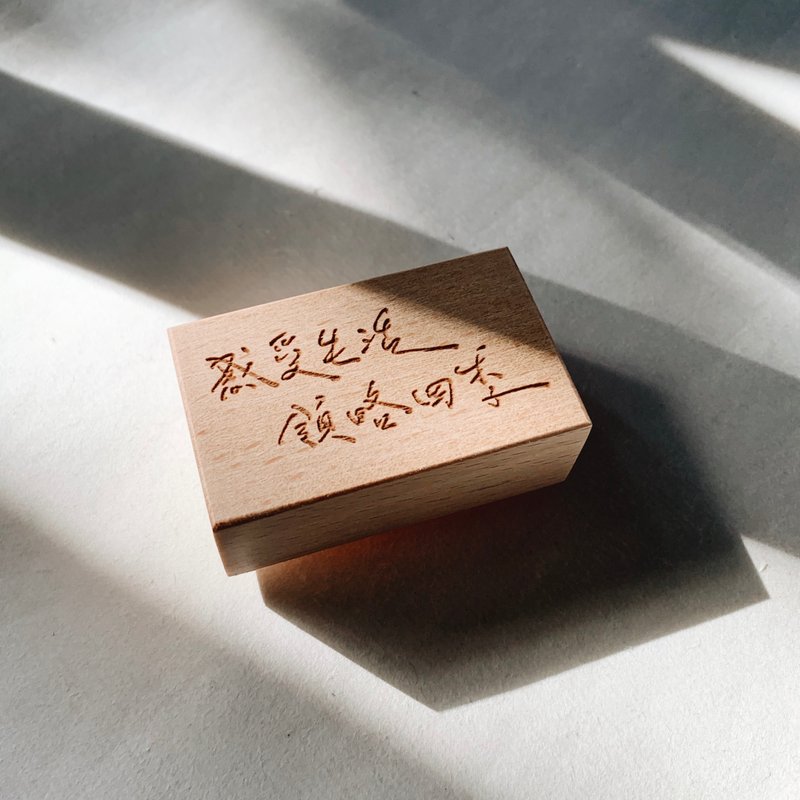 感受生活
領略四季